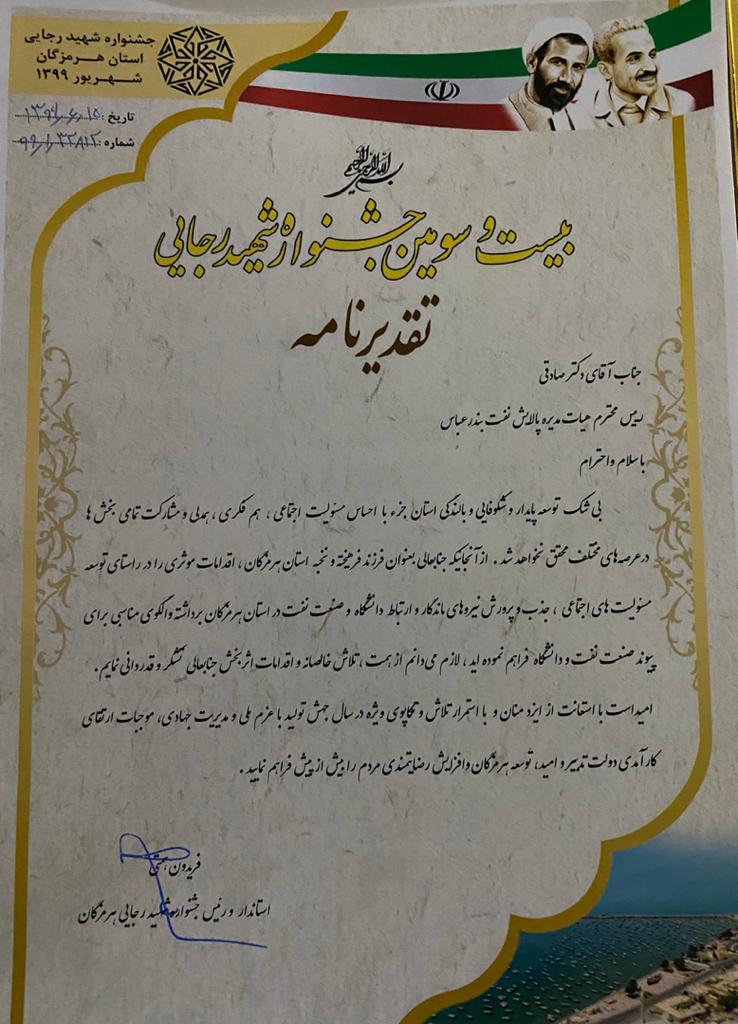 جشنواره شهید رجایی
استان هـرمزگان
شـهریور ۱۳۹۹
تاریخ : ۱۳۹۹٫۶٫۱۵
شماره : ۹۹/۱/۳۲۸۱۲
بسم الله الرحمن الرحیم
بیست و سومین جشنواره شهید رجایی
تقدیرنامه
جناب آقای دکتر صادقی
رییس محترم هیات مدیره پالایش نفت بندرعباس
باسلام واحترام
بی شک توسعه پایدار و شکوفایی و بالندگی استان جزء با احساس مسئولیت اجتماعی ، هم فکری ، همدلی و مشارکت تمامی بخش ها
درعرصه های مختلف محقق نخواهد شد . از آنجائیکه جنابعالی بعنوان فرزند فرهیخته و نخبه استان هرمزگان ، اقدامات موثری را در راستای توسعه
مسئولیت های اجتماعی ، جذب و پرورش نیروهای ماندگار و ارتباط دانشگاه و صنعت نفت در استان هرمزگان برداشته والگوی مناسبی برای
پیوند صنعت نفت و دانشگاه فراهم نموده اید ، لازم می دانم از همت ، تلاش خالصانه و اقدامات اثربخش جنابعالی تشکر و قدردانی نمایم .
امیداست با استعانت از ایزد منان و با استمرار تلاش و تکاپوی ویژه در سال جهش تولید با عزم ملی و مدیریت جهادی، موجبات ارتقای
کارآمدی دولت تدبیر و امید، توسعه هرمزگان وافزایش رضایتمندی مردم را بیش از پیش فراهم نمایید .
فریدون همتی
استاندار و رئیس جشنواره شهید رجایی هرمزگان